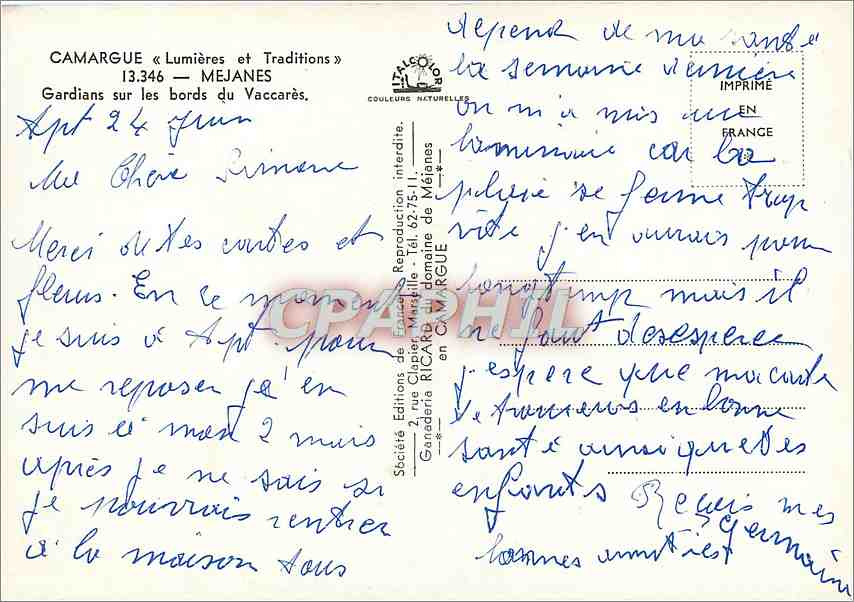 CAMARGUE « Lumières et Traditions »
13.346 — MEJANES
Gardians sur les bords du Vaccarès.
ITALCOLOR
COULEURS NATURELLES
Apt 24 Juin
Ma Chère Simone
Merci de tes cartes et
fleurs. En ce moment
je suis à Apt. pour
me reposer j'en
suis à mon 2 mois
après je ne sais si
je pourrais rentrer
à la maison tous
Société Editions de France. Reproduction interdite.
2, rue Clapier, Marseille - Tél. 62-75-11.
Ganaderia RICARD du domaine de Méjanes
en CAMARGUE
IMPRIMÉ
EN
FRANCE
depend de ma santé
la semaine dernière
on m'a mis une
car la
se ferme trop
vite j'en aurais pour
longtemp mais il
ne faut desesperer
j'espere que ma carte
te trouveras en bonne
santé ainsi que tes
enfants Reçois mes
bonnes amitiés
Germaine
CPAPHIL